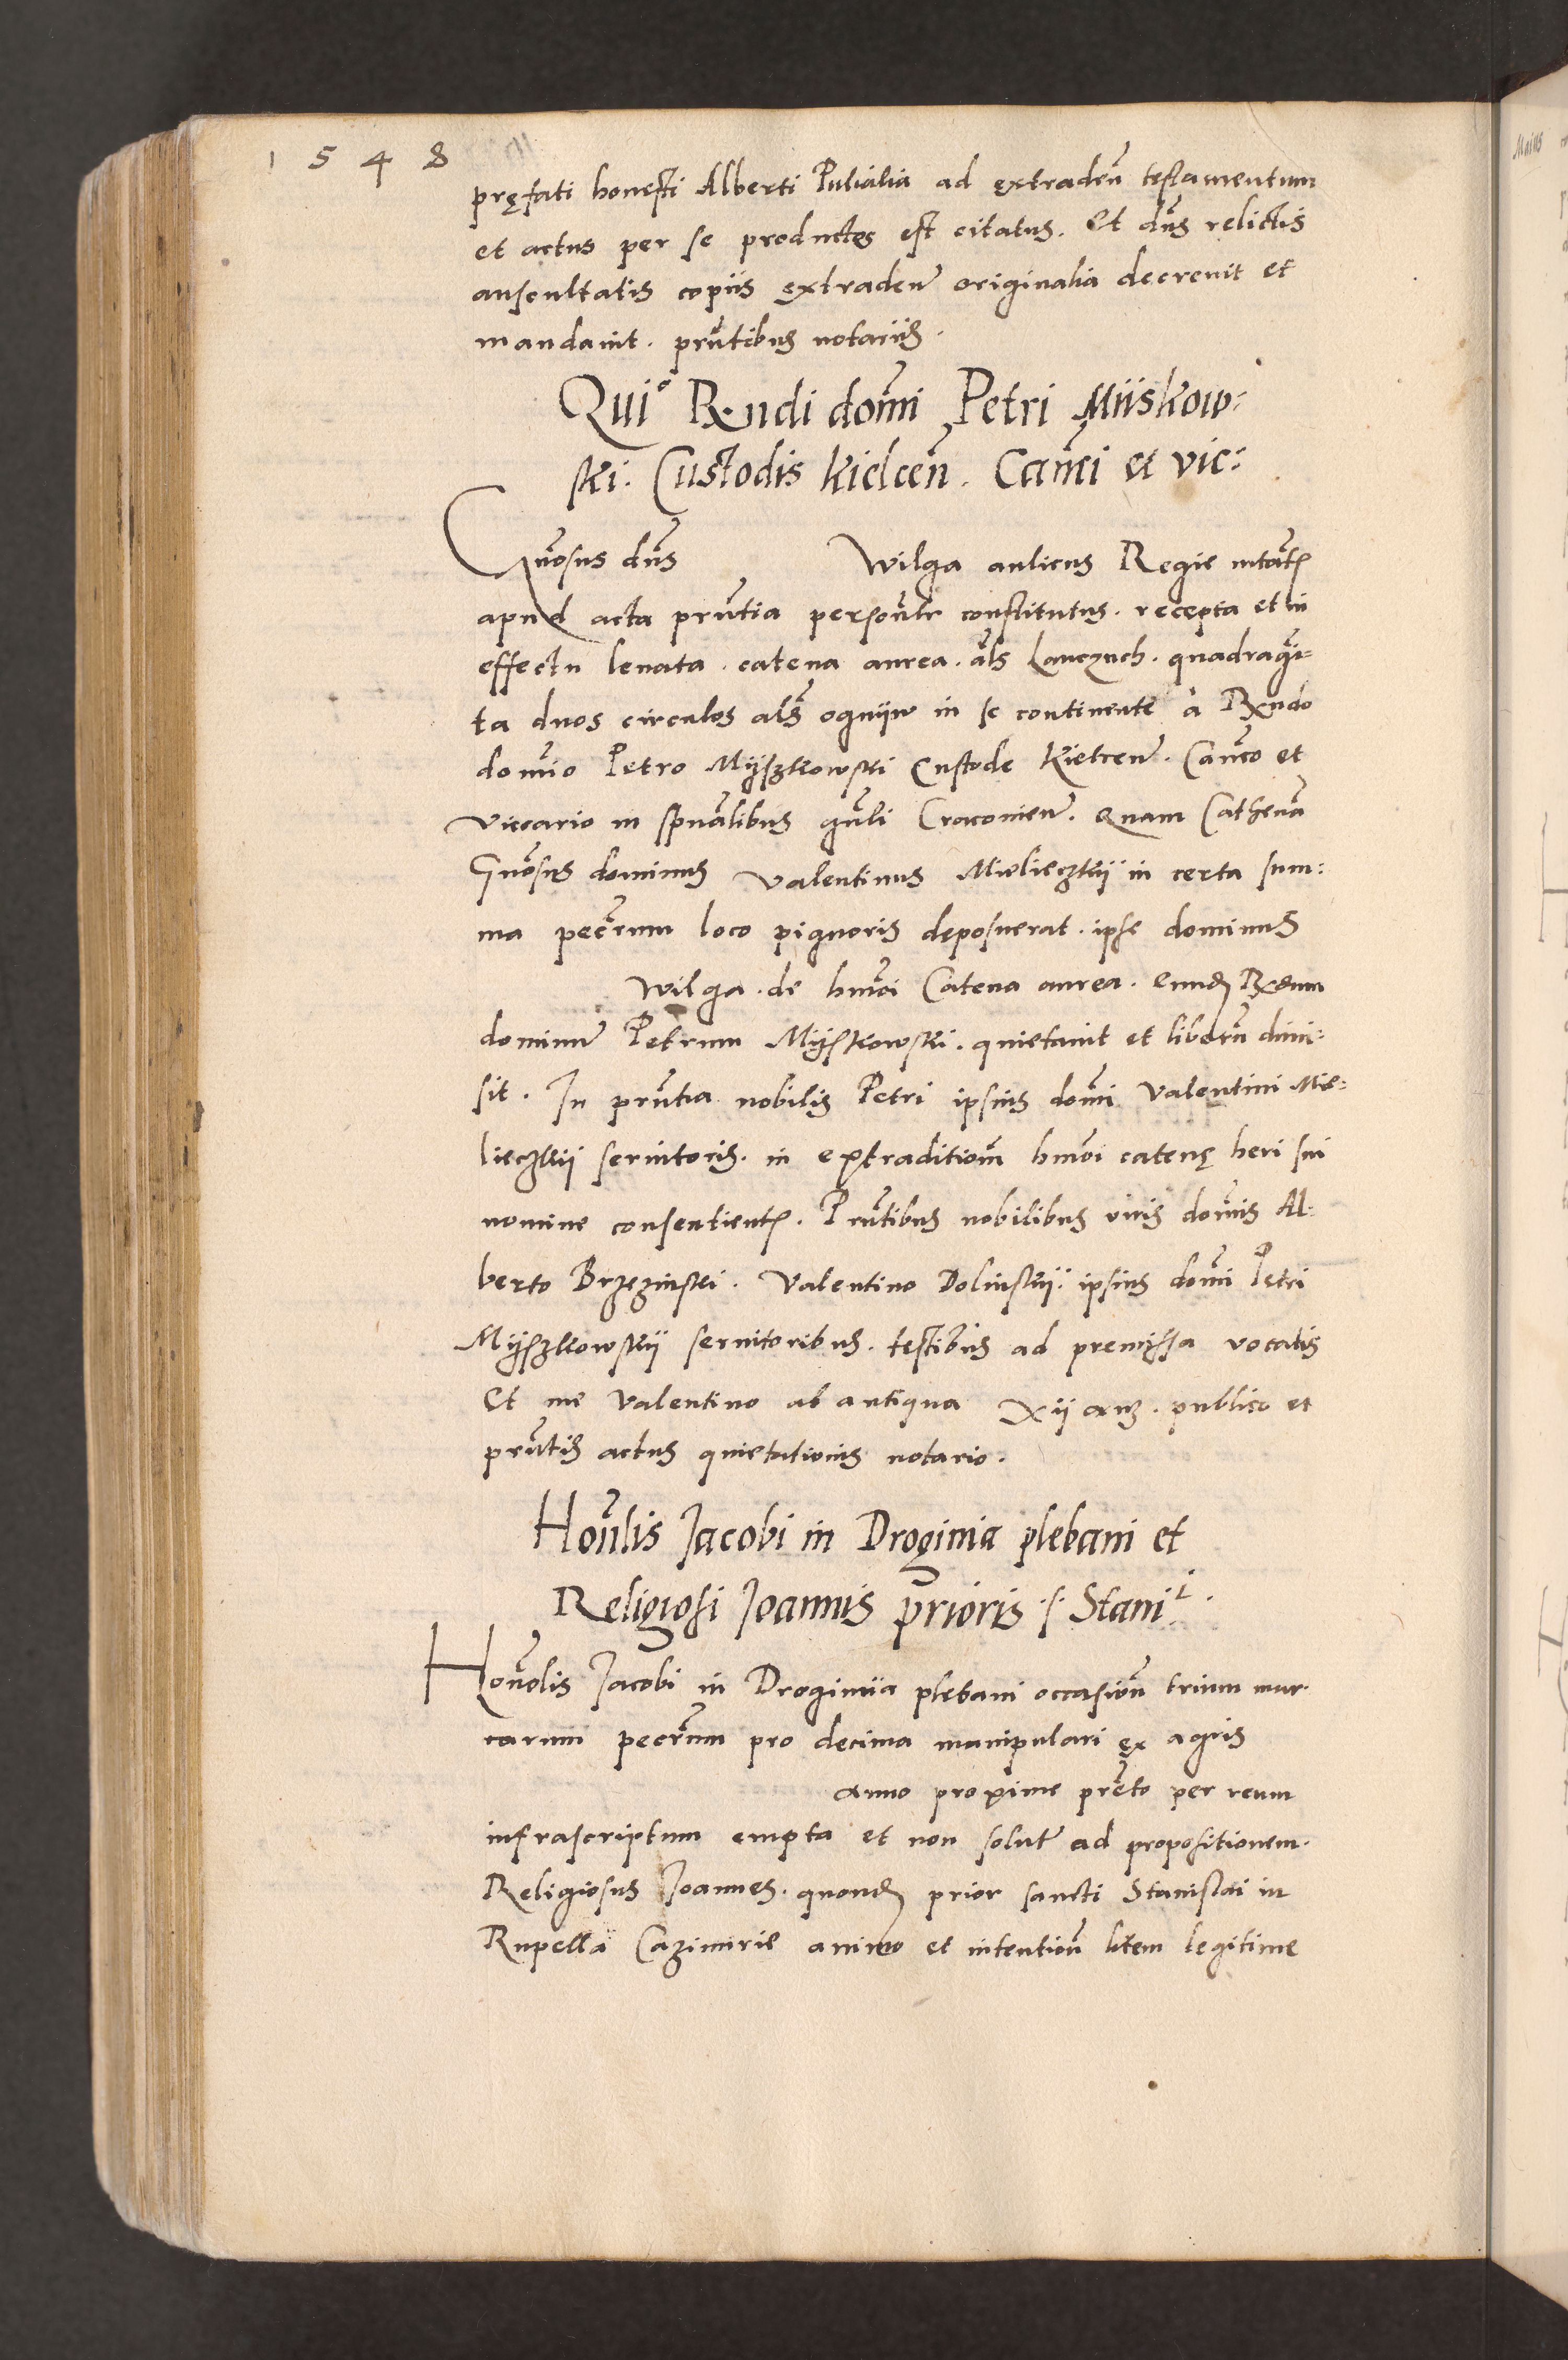 1 5 4 8
pręfati honesti Alberti Pulialia ad extraden̄ testamentum
et actus per se productos est citatus. Et dn̄s relictis
auscultatis copiis extraden̄ originalia decrevit et
mandavit. prn̄tibus notariis.
Quiᵒ Rndi domī Petri Miiskow:
ski. Custodis kielcen̄. Can̄ci et vic:
Gn̄osus dn̄s Wilga aulicus Regie mtāt
apud acta prn̄tia persōnlr constitutus. recepta et in
effectu levata. catena aurea. al̄s Lanczuch. quadragī=
ta duos circulos al̄s ogniiw in se continente à Rndo
domīo Petro Myszkowski Custode Kielcen̄. Can̄co et
viccario in spūalibus gn̄li Cracovien̄. Quam Cathenā
Gn̄osus dominus Valentinus Mieliecżkii in certa sum:
ma pecr̄um loco pignoris deposuerat. ipse dominus
Wilga. de hmōi Catena aurea. eund Rndum
dominū Petrum Myskowski. quietavit et liberū dimi:
sit. In prn̄tia nobilis Petri ipsius domī Valentini Mie:
lieczkii servitoris. in extraditionē hmōi catenę heri sui
nomine consentient. Prn̄tibus nobilibus viris domīs Al:
berto Brzezinski. Valentino Dolinskii. ipsius domī Petri
Myszkowskii servitoribus. testibus ad premissa vocatis
Et me Valentino ab antiqua Xii anz. publico et
prn̄tis actus quietationis notario.
Honr̄lis Jacobi in Droginia plebani et
Religiosi Joannis prīoris .s. Stanil.
Honōlis Jacobi in Droginiia plebani occasionē trium mar
carum pecr̄um pro decima manipulari ex agris
anno proxime prēto per reum
infrascriptum empta et non solutā ad propositionem.
Religiosus Joannes. quond prior sancti Stanislai in
Rupella Cazimirie animo et intentionē litem legitime